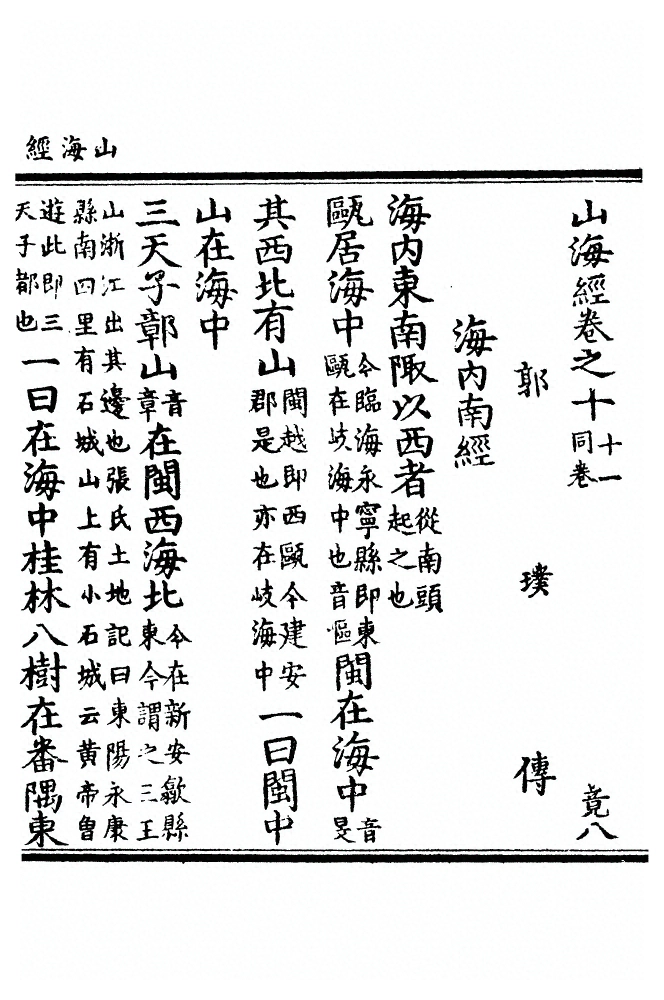 山海經
山海經卷之十十一同卷 竟八
郭璞傳
海内南經
海内東南陬以西者從南頭起之也
甌居海中今臨海永寧縣即東甌在岐海中也音慪閩在海中音旻
其西北有山閩越即西甌今建安郡是也亦在岐海中一曰閩中
山在海中
三天子鄣山音章在閩西海北今在新安歙縣東今謂之三王
山浙江出其邊也張氏土地記曰東陽永康縣南四里有石城山上有小石城云黃帝曾
遊此即三天子都也一曰在海中桂林八樹在番隅東